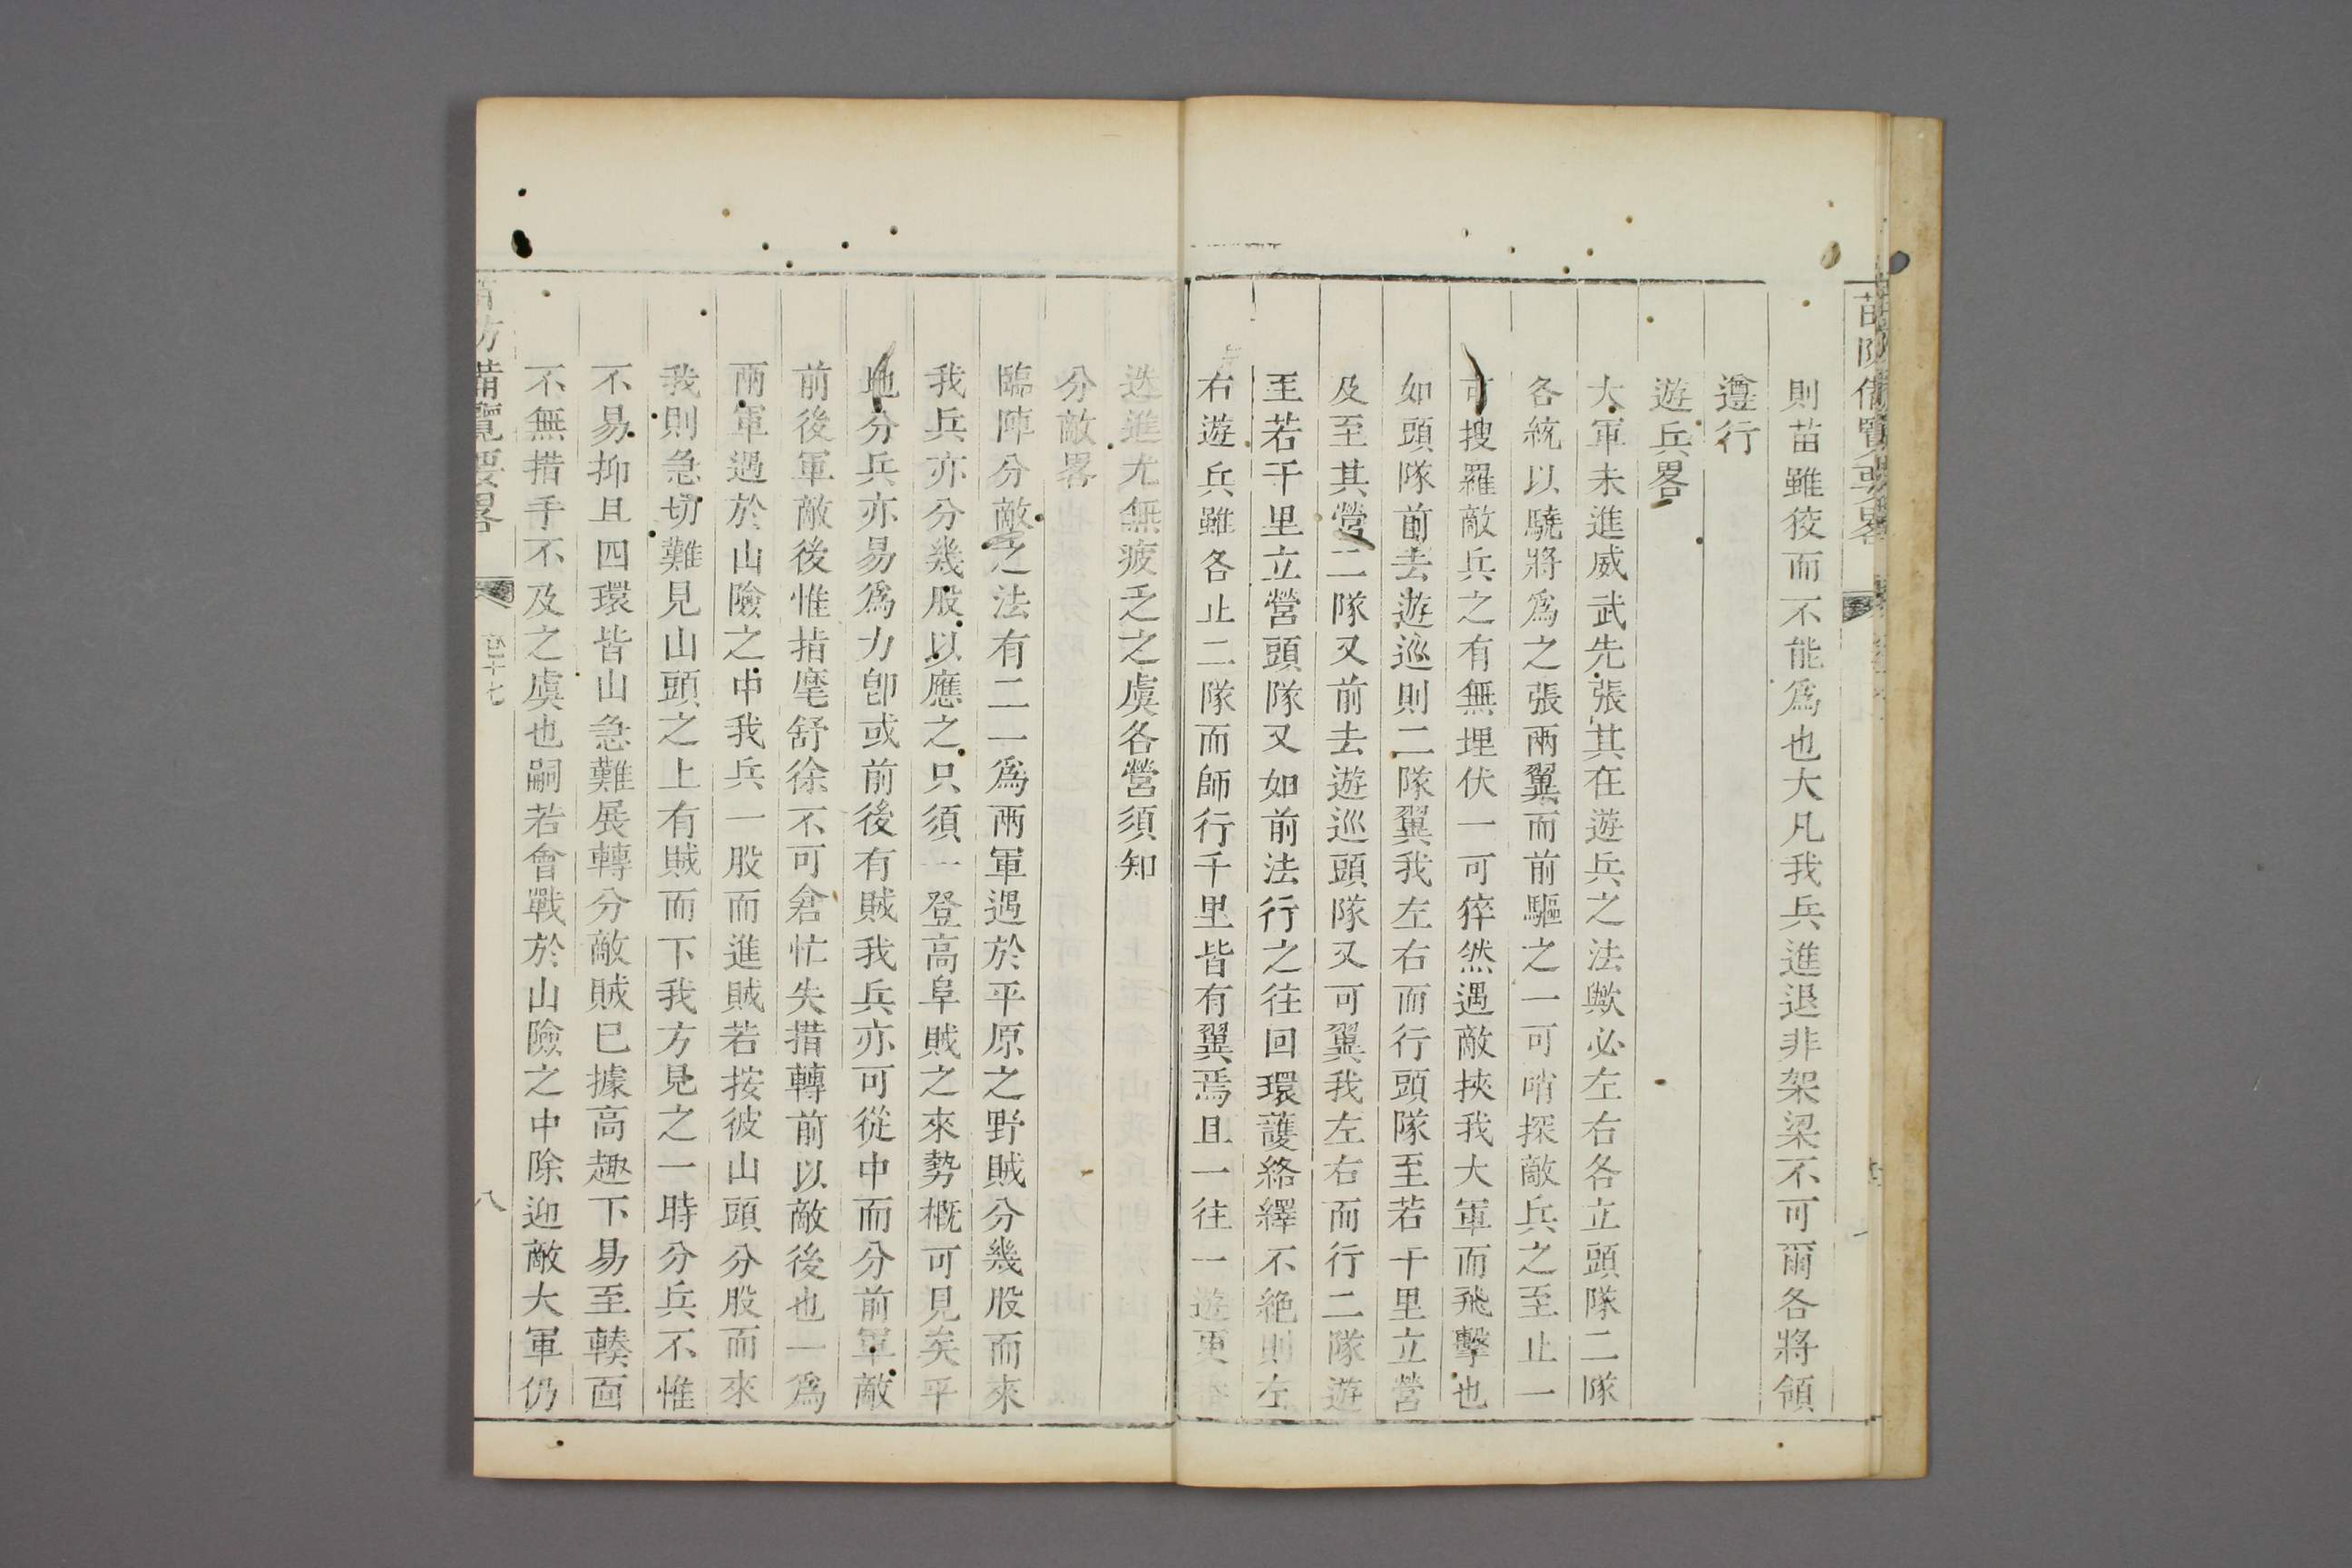 苗防備覽要畧
則苗雖狡而不能爲也大凡我兵進退非架梁不可爾各將領
遵行
遊兵畧
大軍未進威武先張其在遊兵之法歟必左右各立頭隊二隊
各統以驍將爲之張兩翼而前驅之一可哨探敵兵之至止一
可搜羅敵兵之有無埋伏一可猝然遇敵挾我大軍而飛擊也
如頭隊前去遊巡則二隊翼我左右而行頭隊至若干里立營
及至其營二隊又前去遊巡頭隊又可翼我左右而行二隊遊
至若干里立營頭隊又如前法行之往回環護絡繹不絶則左
右遊兵雖各止二隊而師行千里皆有翼焉且一往一遊更
迭進尤無疲乏之虞各營須知
分敵畧
臨陣分敵之法有二一爲兩軍遇於平原之野賊分幾股而來
我兵亦分幾股以應之只須一登高阜賊之來勢概可見矣平
地分兵亦易爲力卽或前後有賊我兵亦可從中而分前軍敵
前後軍敵後惟指麾舒徐不可倉忙失措轉前以敵後也一爲
兩軍遇於山險之中我兵一股而進賊若按彼山頭分股而來
我則急切難見山頭之上有賊而下我方見之一時分兵不惟
不易抑且四環皆山急難展轉分敵賊已據高趣下易至轃面
不無措手不及之虞也嗣若會戰於山險之中除迎敵大軍仍
苗防備覽要畧
卷十七
八